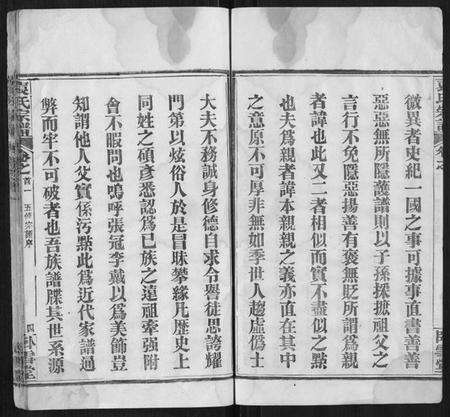 袁氏宗譜
卷之
臥雲堂
微異者史紀一國之事可據事直書善善
惡惡無所隱護譜則以子孫採摭祖父之
言行不免隱惡揚善有褒無貶所謂為親
者諱也此又二者相似而實不盡似之點
也夫為親者諱本親親之義亦直在其中
之意原不可厚非無如季世人趨虛偽士
大夫不務誠身修德自求令譽徒思誇耀
門第以炫俗人於是冒昧攀緣凡歷史上
同姓之碩彥悉認為已族之遠祖牽強附
會不暇問也嗚呼張冠李戴以為美飾豈
知謂他人父實係污點此為近代家譜通
弊而牢不可破者也吾族譜牒其世系源
袁氏宗譜
卷之首一
五修
序
四
臥雲堂